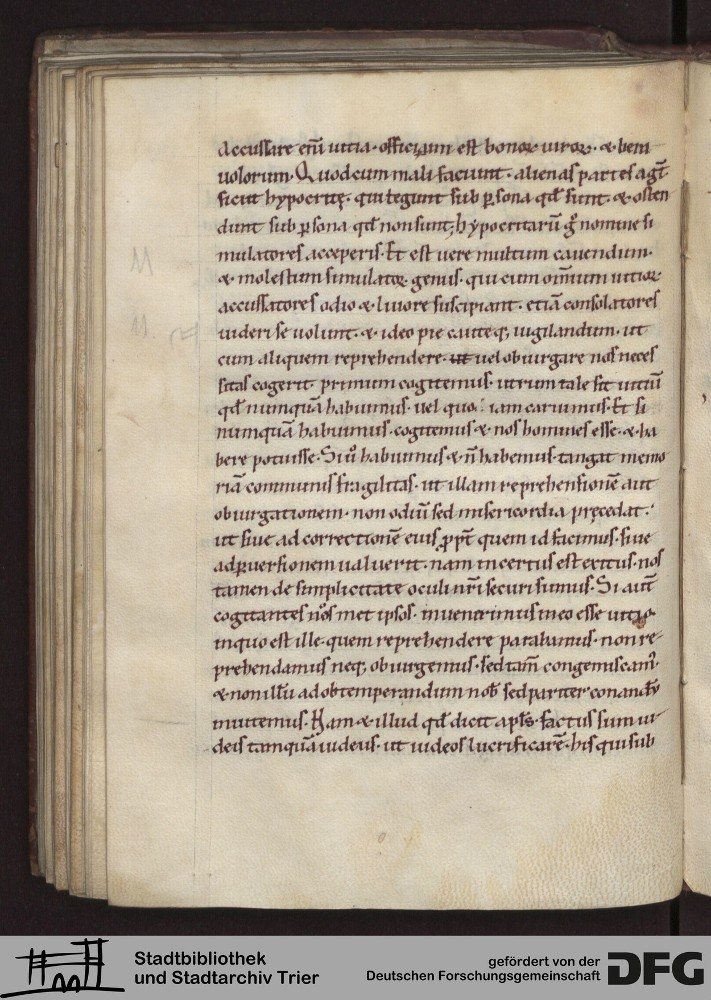 Accussare eni uitia · officium est bonoꝝ uiroꝝ · & beni
uolorum · Quod cum mali faciunt · alienas partes agt̄ ·
sicut hypocritę · qui tegunt sub ꝑsona qđ sunt · & osten
dunt sub ꝑsona qđ non sunt; hypocritarū gͦ nomine si
mulatores acceperis · Et est uere multum cauendum ·
& molestum simulatoꝝ genus · qui cum om̄ium uitioꝝ
accussatores odio & liuore suscipiant · etiā consolatores
uideri se uolunt · & ideo pie cauteq; uigilandum · ut
cum aliquem reprehendere · ut uel obiurgare nos neces
sitas cogerit · primum cogitemus · utrum tale sit uitiū
qđ numquā habuimus · uel quo iam caruimus · Et si
numquā habuimus · cogitemus & nos homines esse · & ha
bere potuisse · Si ū habuimus & n̄ habemus · tangat memo
riā communis fragilitas · ut illam reprehensionē aut
obiurgationem · non odiū sed misericordia pręcedat ·
ut siue ad correctionē eius ꝓpt̄ quem id facimus · siue
ad ꝑuersionem ualuerit · nam incertus est exitus · nos
tamen de simplicitate oculi nr̄i securi simus · Si aut̄
cogitantes nos met ipsos · inuenerimus in eo esse uitio ·
in quo est ille · quem reprehendere parabamus · non re-
prehendamus neq; obiurgemus · sed tam̄ congemiscam᾽
& non illū ad obtemperandum nob̄ sed pariter conandū
inuitemus · Nam & illud qđ dicit apl̄s · factus sum iu-
deis tamquā iudeus · ut iudeos lucrificarē · his qui sub
Stadtbibliothek
und Stadtarchiv Trier
gefördert von der
Deutschen Forschungsgemeinschaft
DFG